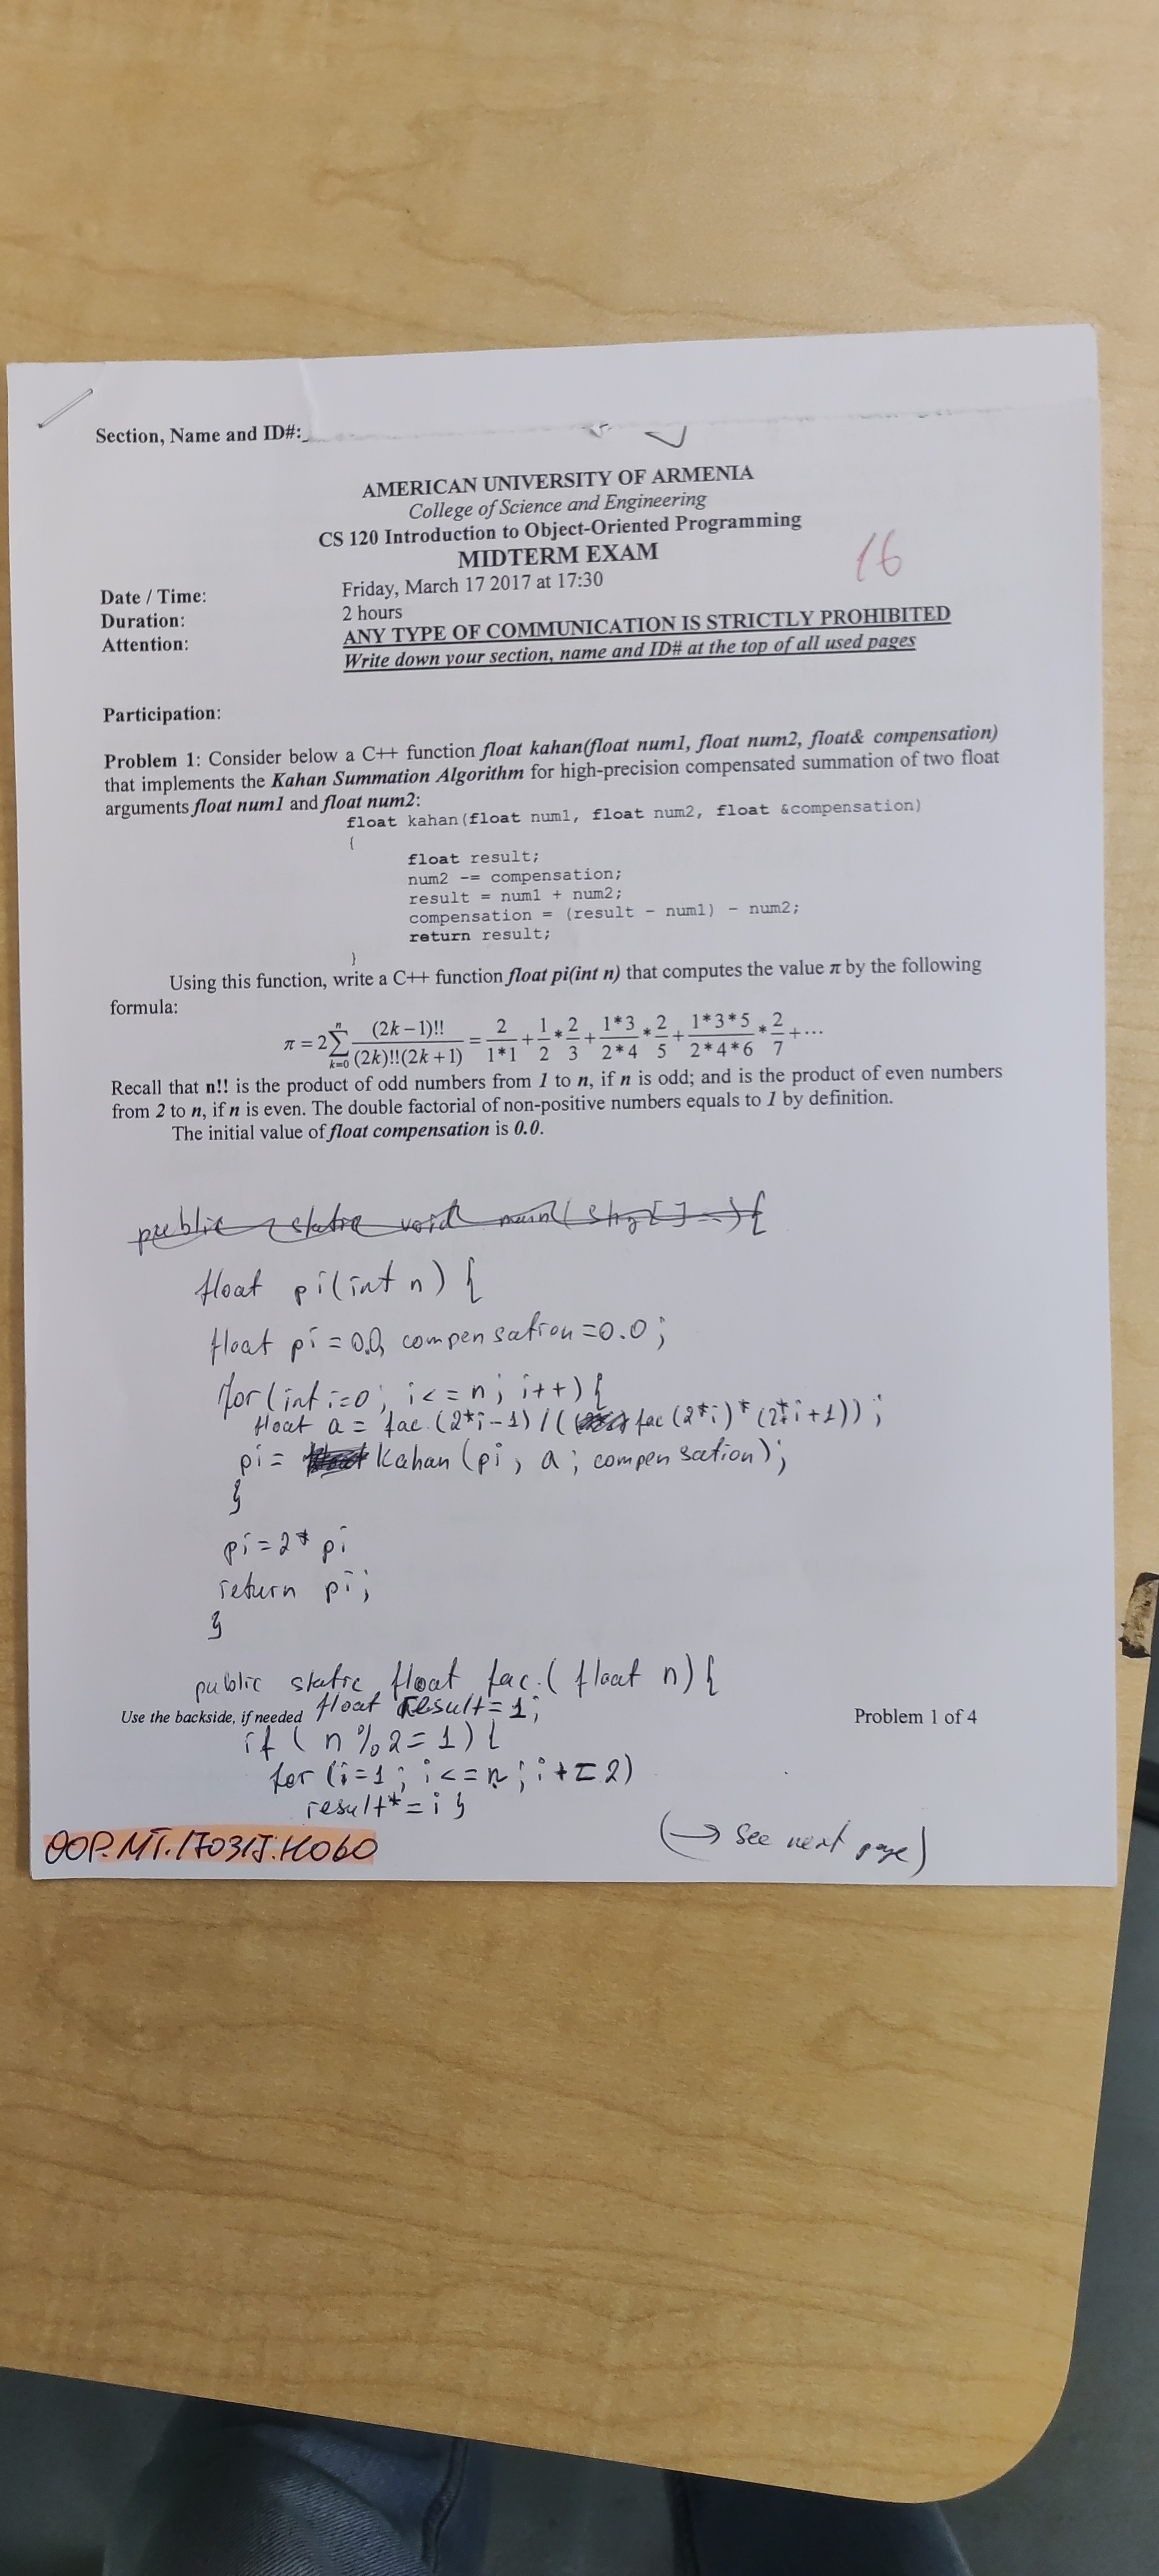 Section, Name and ID#:_
AMERICAN UNIVERSITY OF ARMENIA
College of Science and Engineering
CS 120 Introduction to Object-Oriented Programming
MIDTERM EXAM
16
Date / Time: Friday, March 17 2017 at 17:30
Duration: 2 hours
Attention: ANY TYPE OF COMMUNICATION IS STRICTLY PROHIBITED
Write down your section, name and ID# at the top of all used pages
Participation:
Problem 1: Consider below a C++ function float kahan(float num1, float num2, float& compensation)
that implements the Kahan Summation Algorithm for high-precision compensated summation of two float
arguments float num1 and float num2:
float kahan(float num1, float num2, float &compensation)
{
float result;
num2 -= compensation;
result = num1 + num2;
compensation = (result - num1) - num2;
return result;
}
Using this function, write a C++ function float pi(int n) that computes the value π by the following
formula:
π = 2 ∑_{k=0}^{n} (2k−1)!! / ((2k)!!(2k+1)) = 2/(1*1) + 1/2 * 2/3 + (1*3)/(2*4) * 2/5 + (1*3*5)/(2*4*6) * 2/7 + ···
Recall that n!! is the product of odd numbers from 1 to n, if n is odd; and is the product of even numbers
from 2 to n, if n is even. The double factorial of non-positive numbers equals to 1 by definition.
The initial value of float compensation is 0.0.
public static void main(
float pi(int n) {
float pi = 0.0, compensation = 0.0;
for (int i=0; i<=n; i++) {
float a = fac (2*i-1) / ( fac (2*i) * (2*i+1));
pi = Kahan (pi, a; compensation);
}
pi = 2* pi
return pi;
}
public static float fac. ( float n) {
Use the backside, if needed float result=1; Problem 1 of 4
if ( n % 2 = 1) {
for (i=1; i<=n; i+=2)
result* = i }
(→ see next page)
OOP.MT.170317.H060